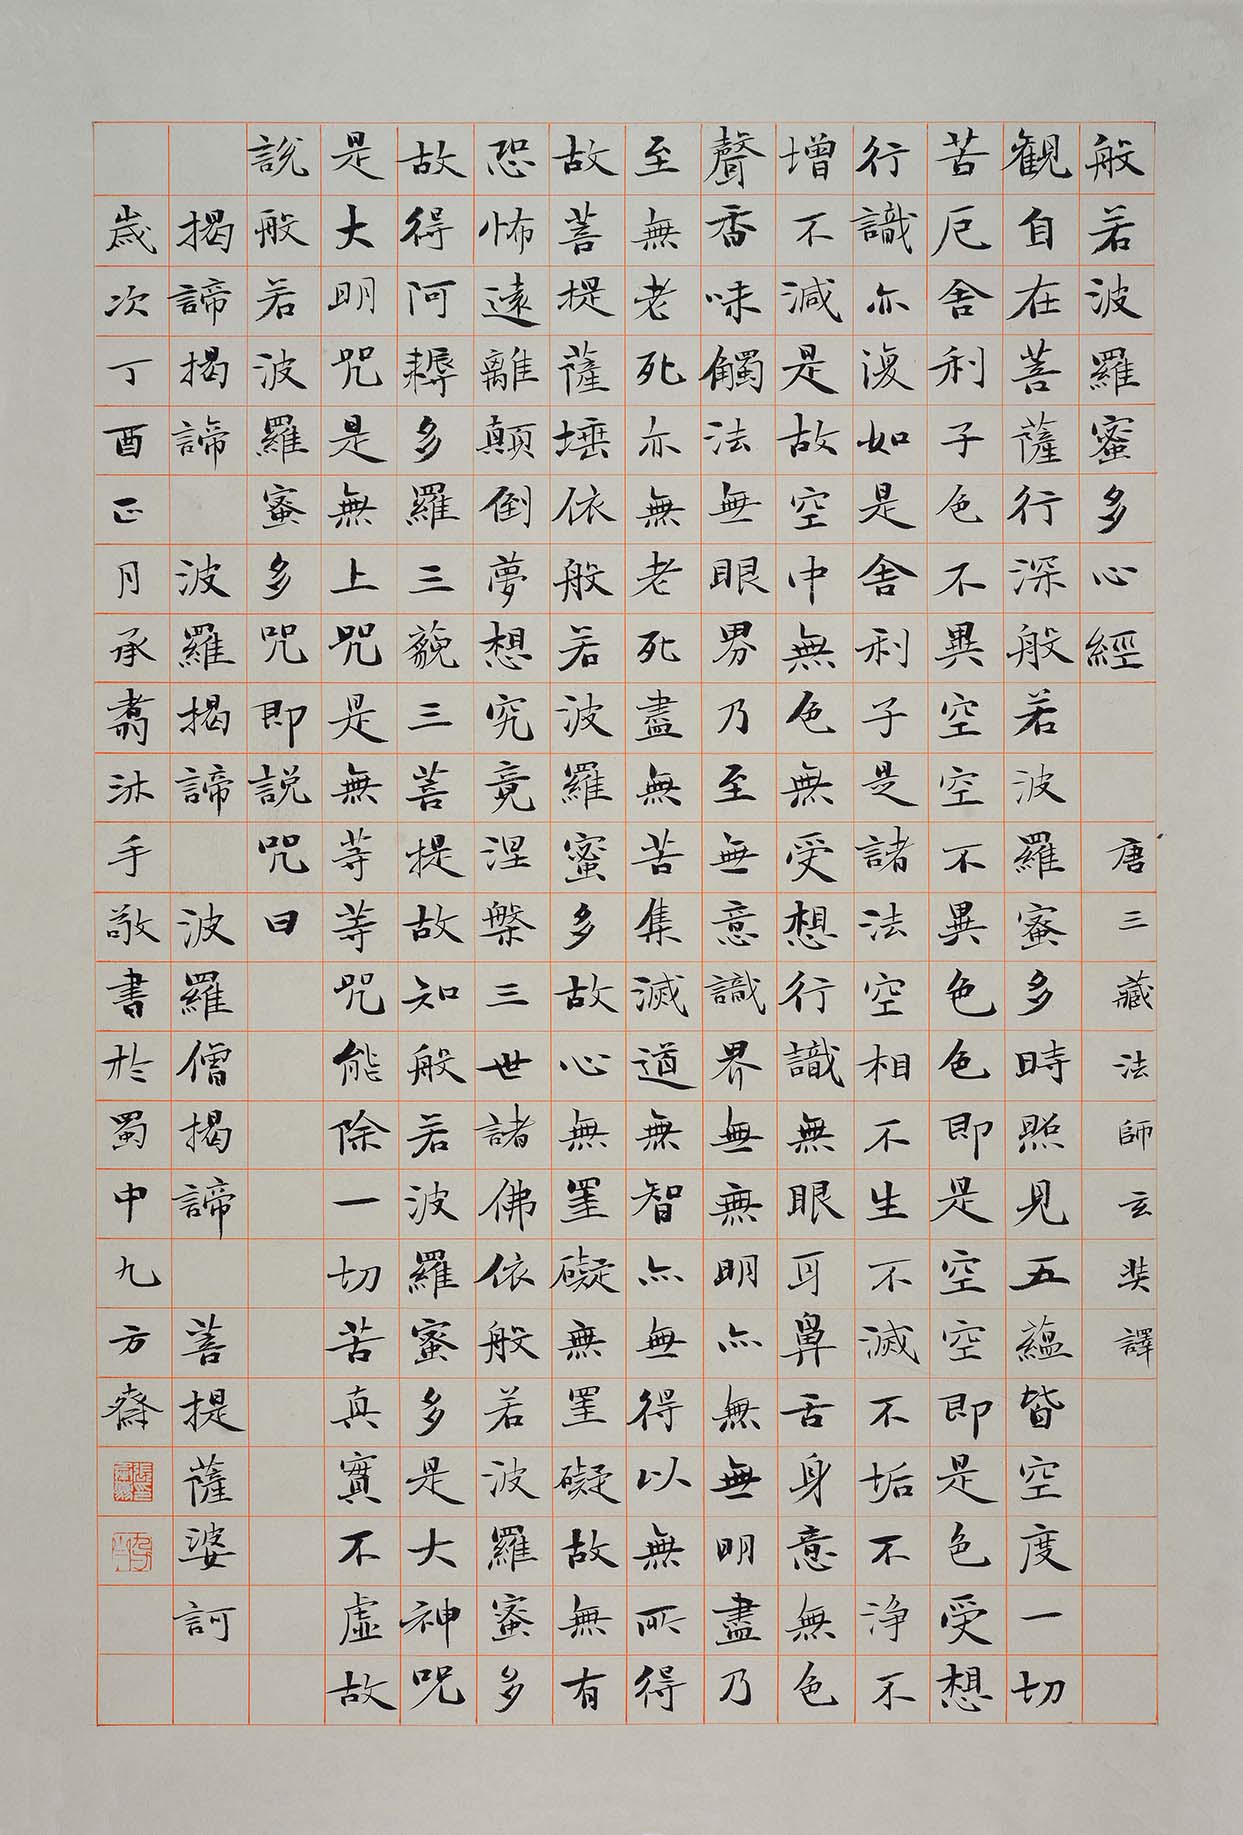 般若波羅蜜多心經 唐三藏法師玄奘譯
觀自在菩薩行深般若波羅蜜多時照見五蘊皆空度一切
苦厄舍利子色不異空空不異色色即是空空即是色受想
行識亦復如是舍利子是諸法空相不生不滅不垢不淨不
增不減是故空中無色無受想行識無眼耳鼻舌身意無色
聲香味觸法無眼界乃至無意識界無無明亦無無明盡乃
至無老死亦無老死盡無苦集滅道無智亦無得以無所得
故菩提薩埵依般若波羅蜜多故心無罣礙無罣礙故無有
恐怖遠離顛倒夢想究竟涅槃三世諸佛依般若波羅蜜多
故得阿耨多羅三藐三菩提故知般若波羅蜜多是大神咒
是大明咒是無上咒是無等等咒能除一切苦真實不虛故
說般若波羅蜜多咒即説咒曰
揭諦揭諦 波羅揭諦 波羅僧揭諦 菩提薩婆訶
歲次丁酉正月承翥沐手敬書於蜀中九方齋